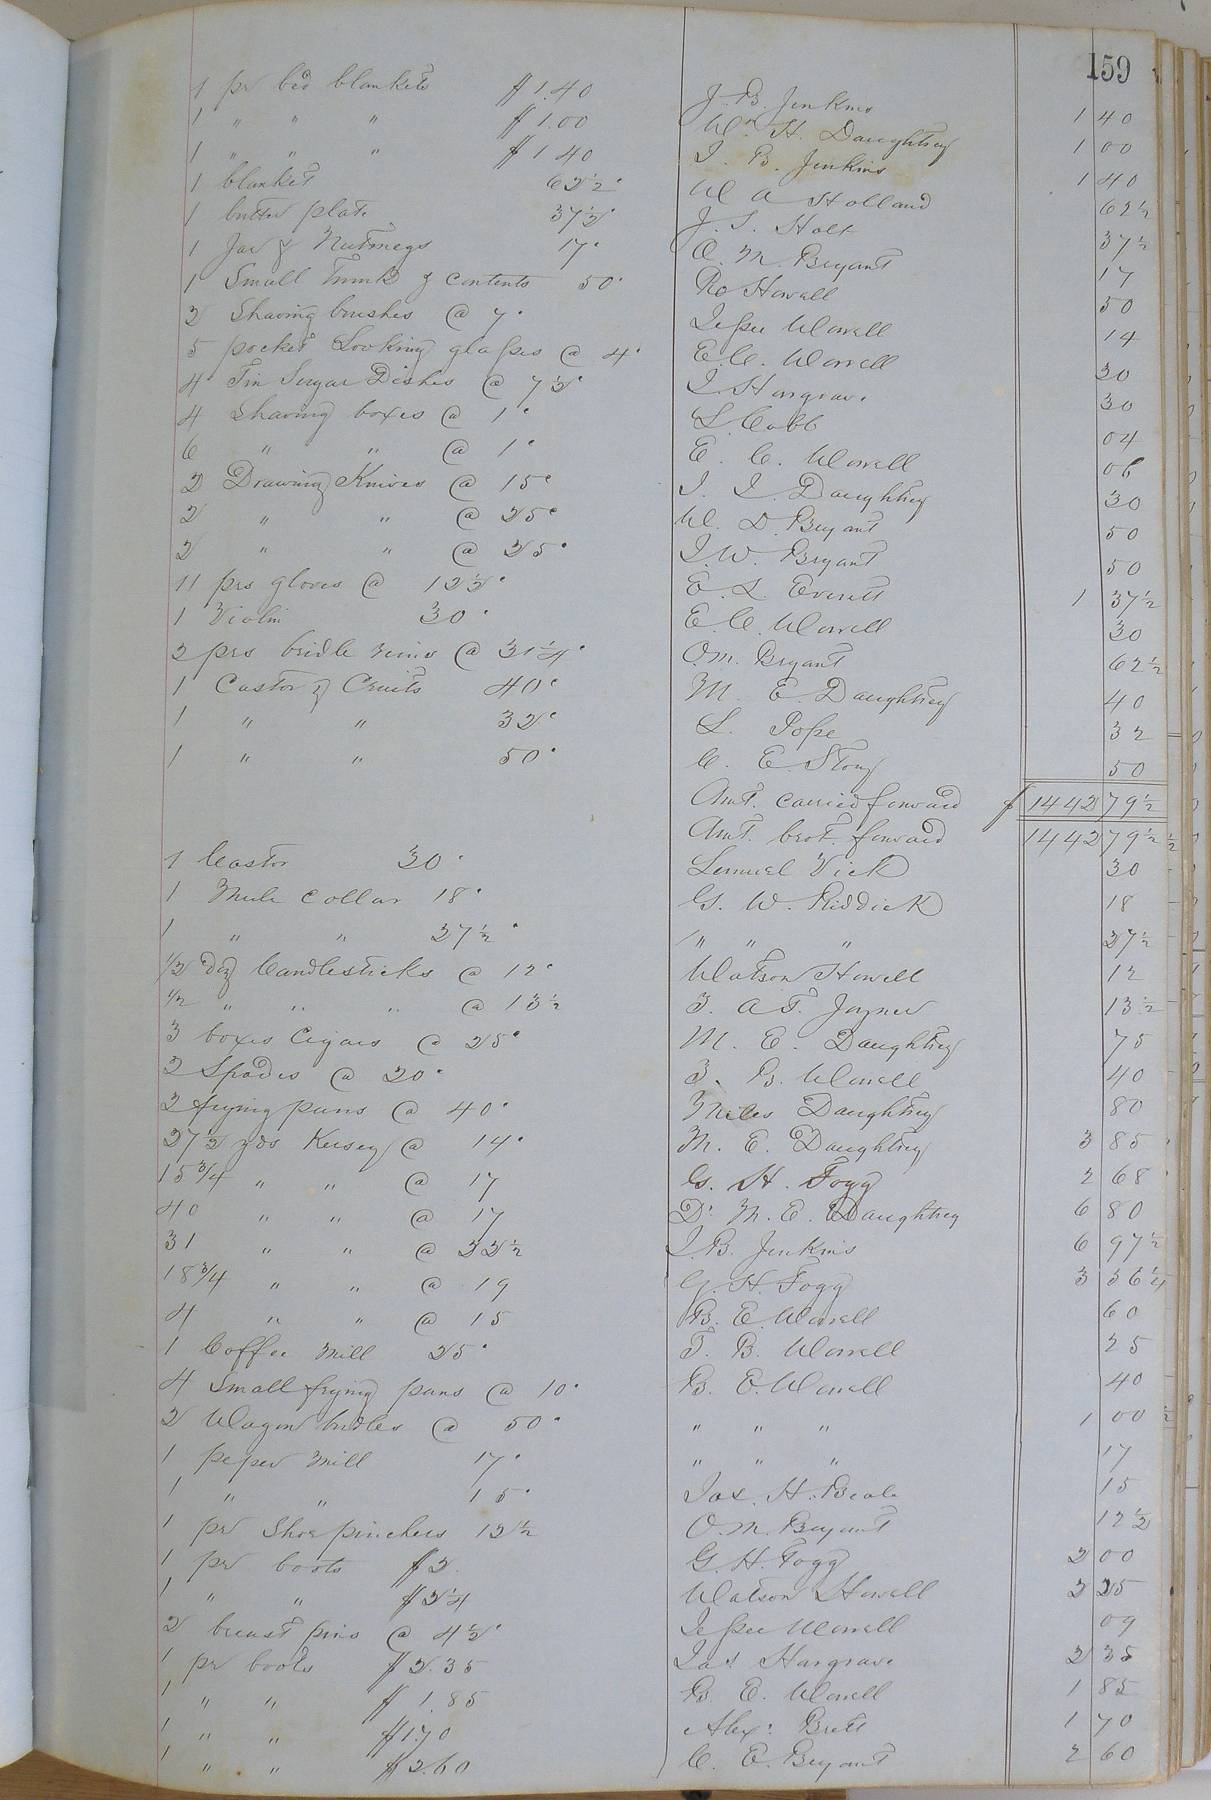 159
1 pr bed blankets $1.40 J. B. Jenkins 1 40
1 " " " $1.00 Wm. H. Daughtrey 1 00
1 " " " $1.40 J. B. Jenkins 1 40
1 blanket 62½c W A Holland 62½
1 butter plate 37½c J. S. Holt 37½
1 Jar & Nutmegs 17c O. M. Bryant 17
1 Small Trunk & contents 50c Ro Howell 50
2 Shaving brushes @ 7c Jesse Worrell 14
5 pocket Looking glasses @ 4c E. C. Worrell 20
4 Tin Sugar Dishes @ 7½c J. Hargrave 30
4 Shaving boxes @ 1c L. Cobb 04
6 " " @ 1c E. C. Worrell 06
2 Drawing Knives @ 15c J. J. Daughtrey 30
2 " " @ 25c W. D. Bryant 50
2 " " @ 25c J. W. Bryant 50
11 prs gloves @ 12½c E. L. Everett 1 37½
1 Violin 30c E. C. Worrell 30
2 prs bridle reins @ 31¼c O. M. Bryant 62½
1 Castor & Cruits 40c M. E. Daughtrey 40
1 " " 32c L. Pope 32
1 " " 50c C. E. Story 50
Amt. carried forward $1442 79½
Amt. brot. forward 1442 79½
1 Castor 30c Lemuel Vick 30
1 Mule Collar 18c G. W. Riddick 18
1 " " 27½c " " " 27½
½ Doz Candlesticks @ 12c Watson Howell 12
½ " " " @ 13½ T. A. T. Joyner 13½
3 boxes Cigars @ 25c M. E. Daughtrey 75
2 Spades @ 20c T. B. Worrell 40
2 frying pans @ 40c Miles Daughtrey 80
27½ yds Kersey @ 14c M. E. Daughtrey 3 85
15¾ " " @ 17 G. H. Fogg 2 68
40 " " @ 17 Dr. M. E. Daughtrey 6 80
31 " " @ 22½ J. B. Jenkins 6 97½
18¾ " " @ 19 G. H. Fogg 3 56¼
4 " " @ 15 B. E. Worrell 60
1 Coffee Mill 25c T. B. Worrell 25
4 Small frying pans @ 10c B. E. Worrell 40
2 Wagon bridles @ 50c " " " 1 00
1 peper Mill 17c " " " 17
1 " " 15c Jas. H. Beale 15
1 pr Shoe pinchers 12½ O. M. Bryant 12½
1 pr boots $2 G. H. Fogg 2 00
1 " " $2¼ Watson Howell 2 25
2 breast pins @ 4½c Jesse Worrell 09
1 pr boots $2.35 Jas Hargrave 2 35
1 " " $1.85 B. E. Worrell 1 85
1 " " $1.70 Alex: Brett 1 70
1 " " $2.60 C. E. Bryant 2 60